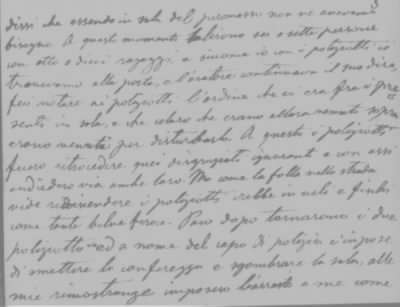 3
dissi che essendo in sala del permesso non ne avevamo
bisogno. A questo momento salirono sei o sette persone
con otto o dieci ragazzi, e siccome io con i poliziotti ci
trovavamo alla porta, e l'oratore continuava il suo dire,
feci notare ai poliziotti l'ordine che vi era fra i pre
senti in sala, e che coloro che erano allora venuti sopra
erano venuti per disturbarlo. A questo i poliziotti
fecero retrocedere quei disgraziati ignoranti e con essi
andiedero via anche loro. Ma come la folla nella strada
vide ridiscendere i poliziotti crebbe in urli e fischi
come tante belve feroce. Poco dopo tornarono i due
poliziotti ed a nome del capo di polizia c'impose
di smettere la conferenza e sgombrare la sala, alle
mie rimostranze imposero l'arresto a me come